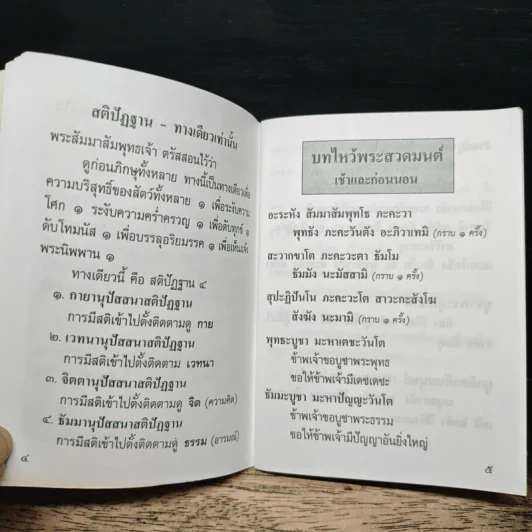 สติปัฏฐาน - ทางเดียวเท่านั้น
พระสัมมาสัมพุทธเจ้า ตรัสสอนไว้ว่า
ดูก่อนภิกษุทั้งหลาย ทางนี้เป็นทางเดียวเพื่อ
ความบริสุทธิ์ของสัตว์ทั้งหลาย ๑ เพื่อระงับความ
โศก ๑ ระงับความคร่ำครวญ ๑ เพื่อดับทุกข์ ๑
ดับโทมนัส ๑ เพื่อบรรลุอริยมรรค ๑ เพื่อเห็นแจ้ง
พระนิพพาน ๑
ทางเดียวนี้ คือ สติปัฏฐาน ๔
๑. กายานุปัสสนาสติปัฏฐาน
การมีสติเข้าไปตั้งติดตามดู กาย
๒. เวทนานุปัสสนาสติปัฏฐาน
การมีสติเข้าไปตั้งติดตาม เวทนา
๓. จิตตานุปัสสนาสติปัฏฐาน
การมีสติเข้าไปตั้งติดตามดู จิต (ความคิด)
๔. ธัมมานุปัสสนาสติปัฏฐาน
การมีสติเข้าไปตั้งติดตามดู ธรรม (อารมณ์)
๔
บทไหว้พระสวดมนต์
เช้าและก่อนนอน
อะระหัง สัมมาสัมพุทโธ ภะคะวา
พุทธัง ภะคะวันตัง อะภิวาเทมิ (กราบ ๑ ครั้ง)
สะวากขาโต ภะคะวะตา ธัมโม
ธัมมัง นะมัสสามิ (กราบ ๑ ครั้ง)
สุปะฏิปันโน ภะคะวะโต สาวะกะสังโฆ
สังฆัง นะมามิ (กราบ ๑ ครั้ง)
พุทธะบูชา มะหาเตชะวันโต
ข้าพเจ้าขอบูชาพระพุทธ
ขอให้ข้าพเจ้ามีเดชเดชะ
ธัมมะบูชา มะหาปัญญะวันโต
ข้าพเจ้าขอบูชาพระธรรม
ขอให้ข้าพเจ้ามีปัญญาอันยิ่งใหญ่
๕